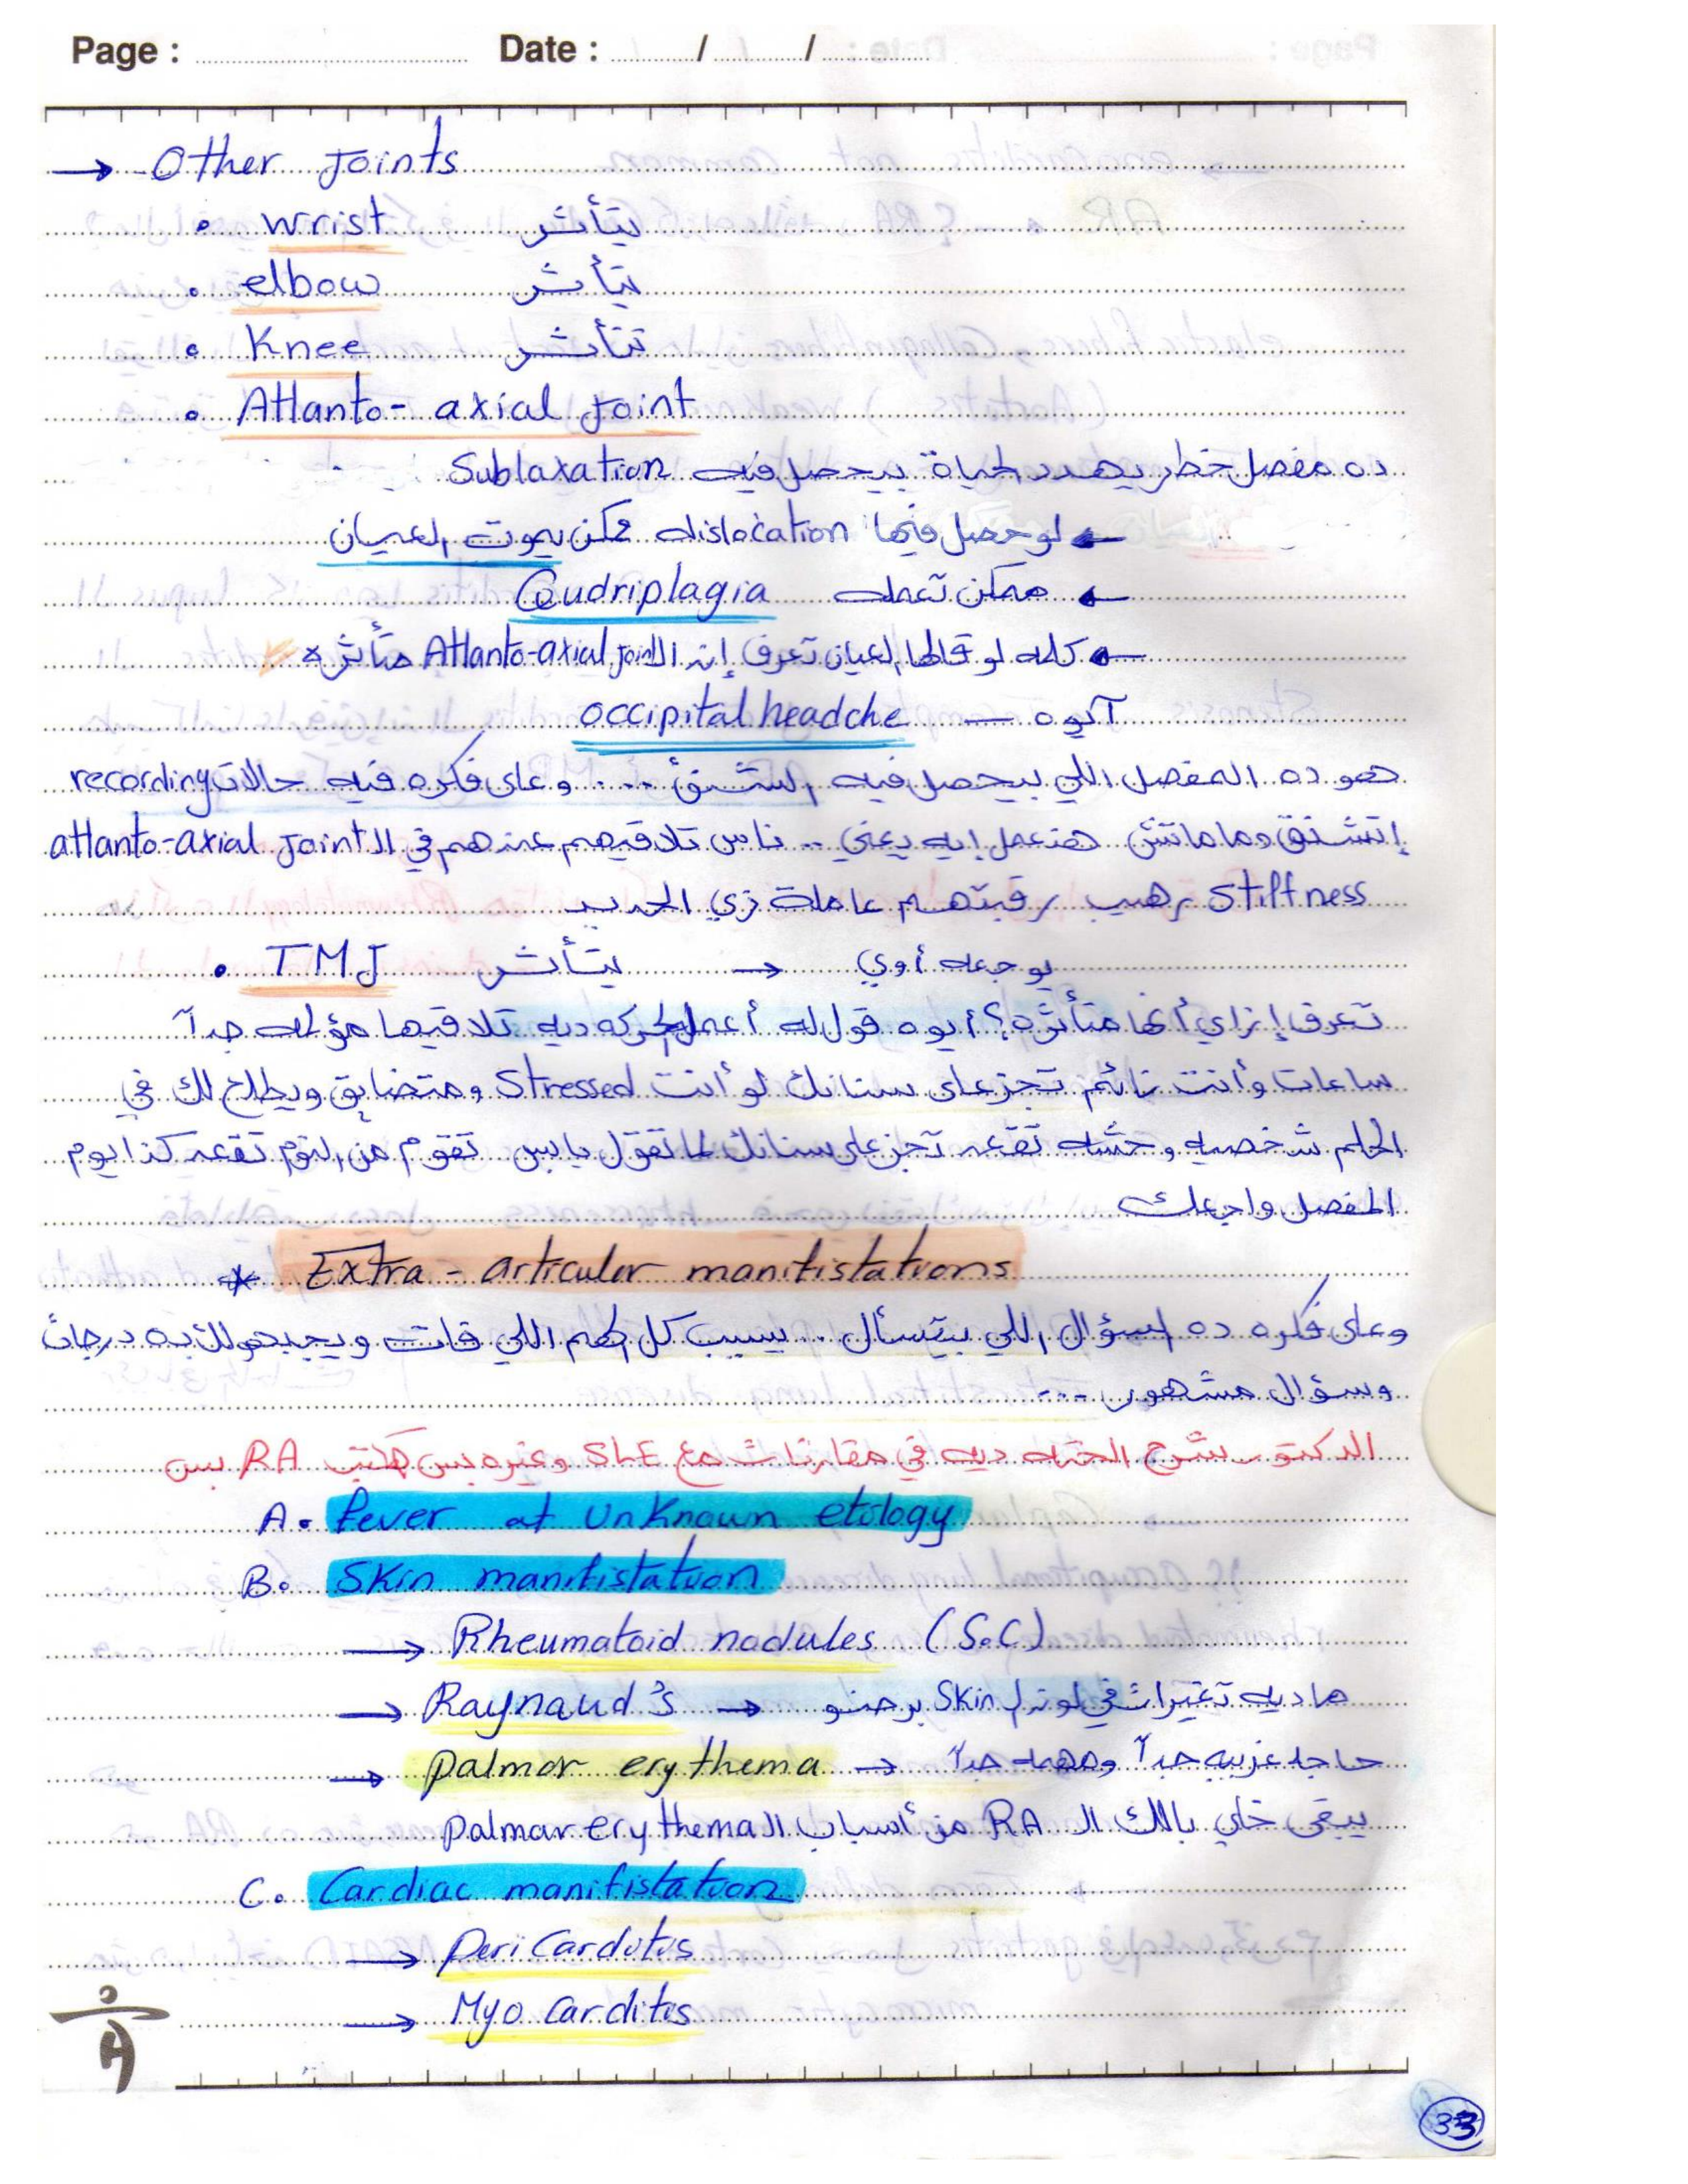 Page : Date : / /
→ Other Joints
• wrist يتأثر
• elbow يتأثر
• Knee تتأثر
• Atlanto-axial Joint
ده مفصل خطر يهدد الحياة بيحصل فيه Sublaxation
← لو حصل فيها dislocation ممكن يموت العيان
← ممكن تعمله Quadriplagia
← كلمه لو قالها العيان تعرف إن الـ Atlanto-axial joint متأثره
أيوه — occipital headche
هو ده المفصل اللي بيحصل فيه الشنق ... وعلى فكره فيه حالات recording
إتشنق وما ماتش هنعمل إيه يعني .. ناس تلاقيهم عندهم في الـ atlanto-axial Joint
Stiffness رهيب رقبتهم عاملة زي الحديد
• TMJ يتأثر → يوجعه أوي
تعرف إزاي أنها متأثره؟ أيوه قول له أعمل الحركه ديه تلاقيها مؤلمه جداً
ساعات وأنت نائم تجز على سنانك لو أنت Stressed ومتضايق ويطلع لك في
الحلم شخصيه وحشه تقعد تجز على سنانك لما تقول يا بس تقوم من النوم تقعد كذا يوم
المفصل واجعك
* Extra - articular manifistations
وعلى فكره ده السؤال اللي بيتسأل .. بسبب كل الهم اللي فات ويجيبهولك به درجات
وسؤال مشهور ...
الدكتور شرح الحته ديه في مقارنات مع SLE وغيره بس هكتب RA بس
A. fever at Unknown etology
B. Skin manifistation
→ Rheumatoid nodules (S.C)
→ Raynaud's → ما ديه تغيرات في لون الـ Skin برضو
→ palmar erythema → حاجه غريبه جداً ومهمه جداً
يبقى خلي بالك الـ RA من أسباب الـ palmar erythema
C. Cardiac manifistation
→ Peri Carditis
→ Myo carditis
33